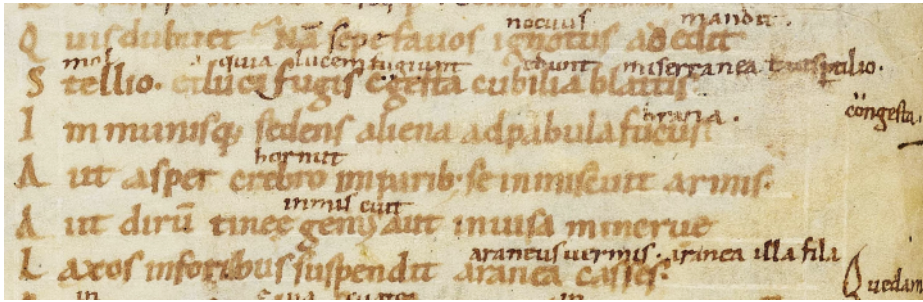 nociuus mandit.
Q uis dubitet Nā sepe fauos ignotus adedit
quia lucem fugiunt edunt
S tellio. et lucifugis cōgesta cubilia blattis
I mmunisq; sedens aliena ad pabula fucus
cōngesta.
hornut
A ut asper crebro imparib; se inmiscuit armis.
inmiscuit
A ut dirū tineę genus aut inuisa minerue
araneus uermis. aranea illa fila
L axos in foribus suspendit aranea casses.
Quedam
in